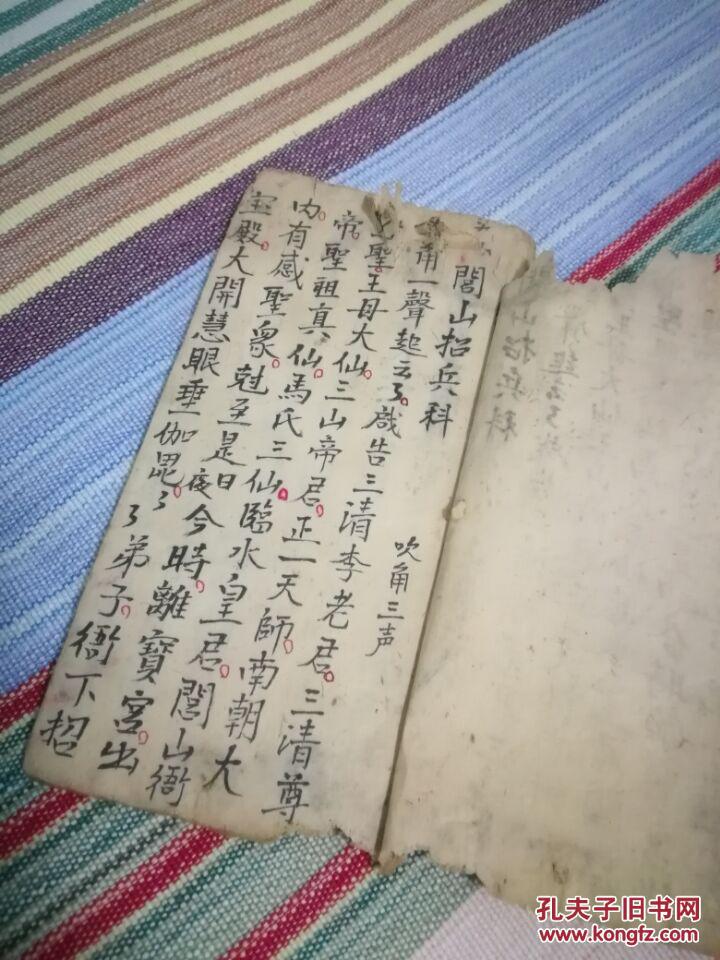 閭山招兵科
角一聲起云了。啟告三清李老君。三清尊
吹角三声
聖。王母大仙。三山帝君。正一天師。南朝大
帝。聖祖真仙。馬氏三仙。臨水皇君。閭山衙
内。有感聖衆。尅至是日夜今時。離寶宮。出
宝殿。大開慧眼垂伽毘。了了弟子。衙下招
閭山招兵科
孔夫子旧书网
www.kongfz.com